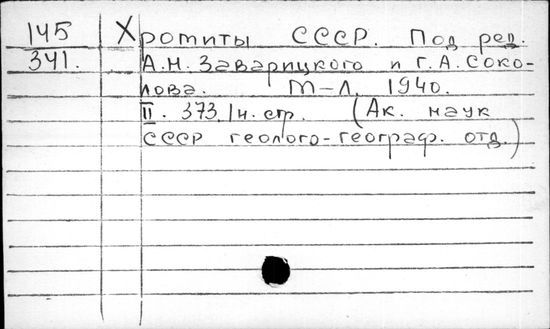 145 Хромиты СССР. Под ред.
341. А.Н. Заварицкого и Г.А. Соко-
лова. М-Л. 1940.
II. 373, 1н. стр. (Ак. наук
СССР геолого-географ. отд.)